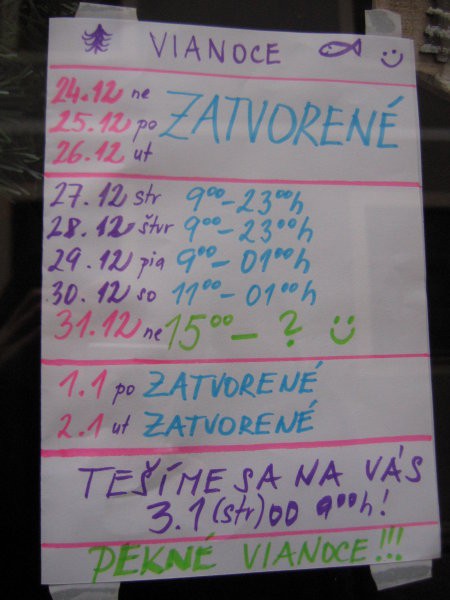 VIANOCE
24.12 ne
25.12 po ZATVORENÉ
26.12 ut
27.12 str 9⁰⁰-23⁰⁰h
28.12 štvr 9⁰⁰-23⁰⁰h
29.12 pia 9⁰⁰-01⁰⁰h
30.12 so 11⁰⁰-01⁰⁰h
31.12 ne 15⁰⁰-?
1.1 po ZATVORENÉ
2.1 ut ZATVORENÉ
TEŠÍME SA NA VÁS
3.1 (str) OD 9⁰⁰h!
PEKNÉ VIANOCE!!!